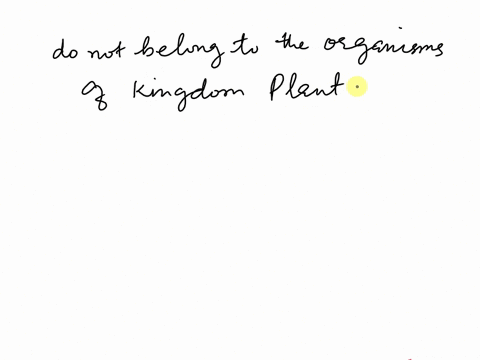 do not belong to the organisms
of Kingdom Plant